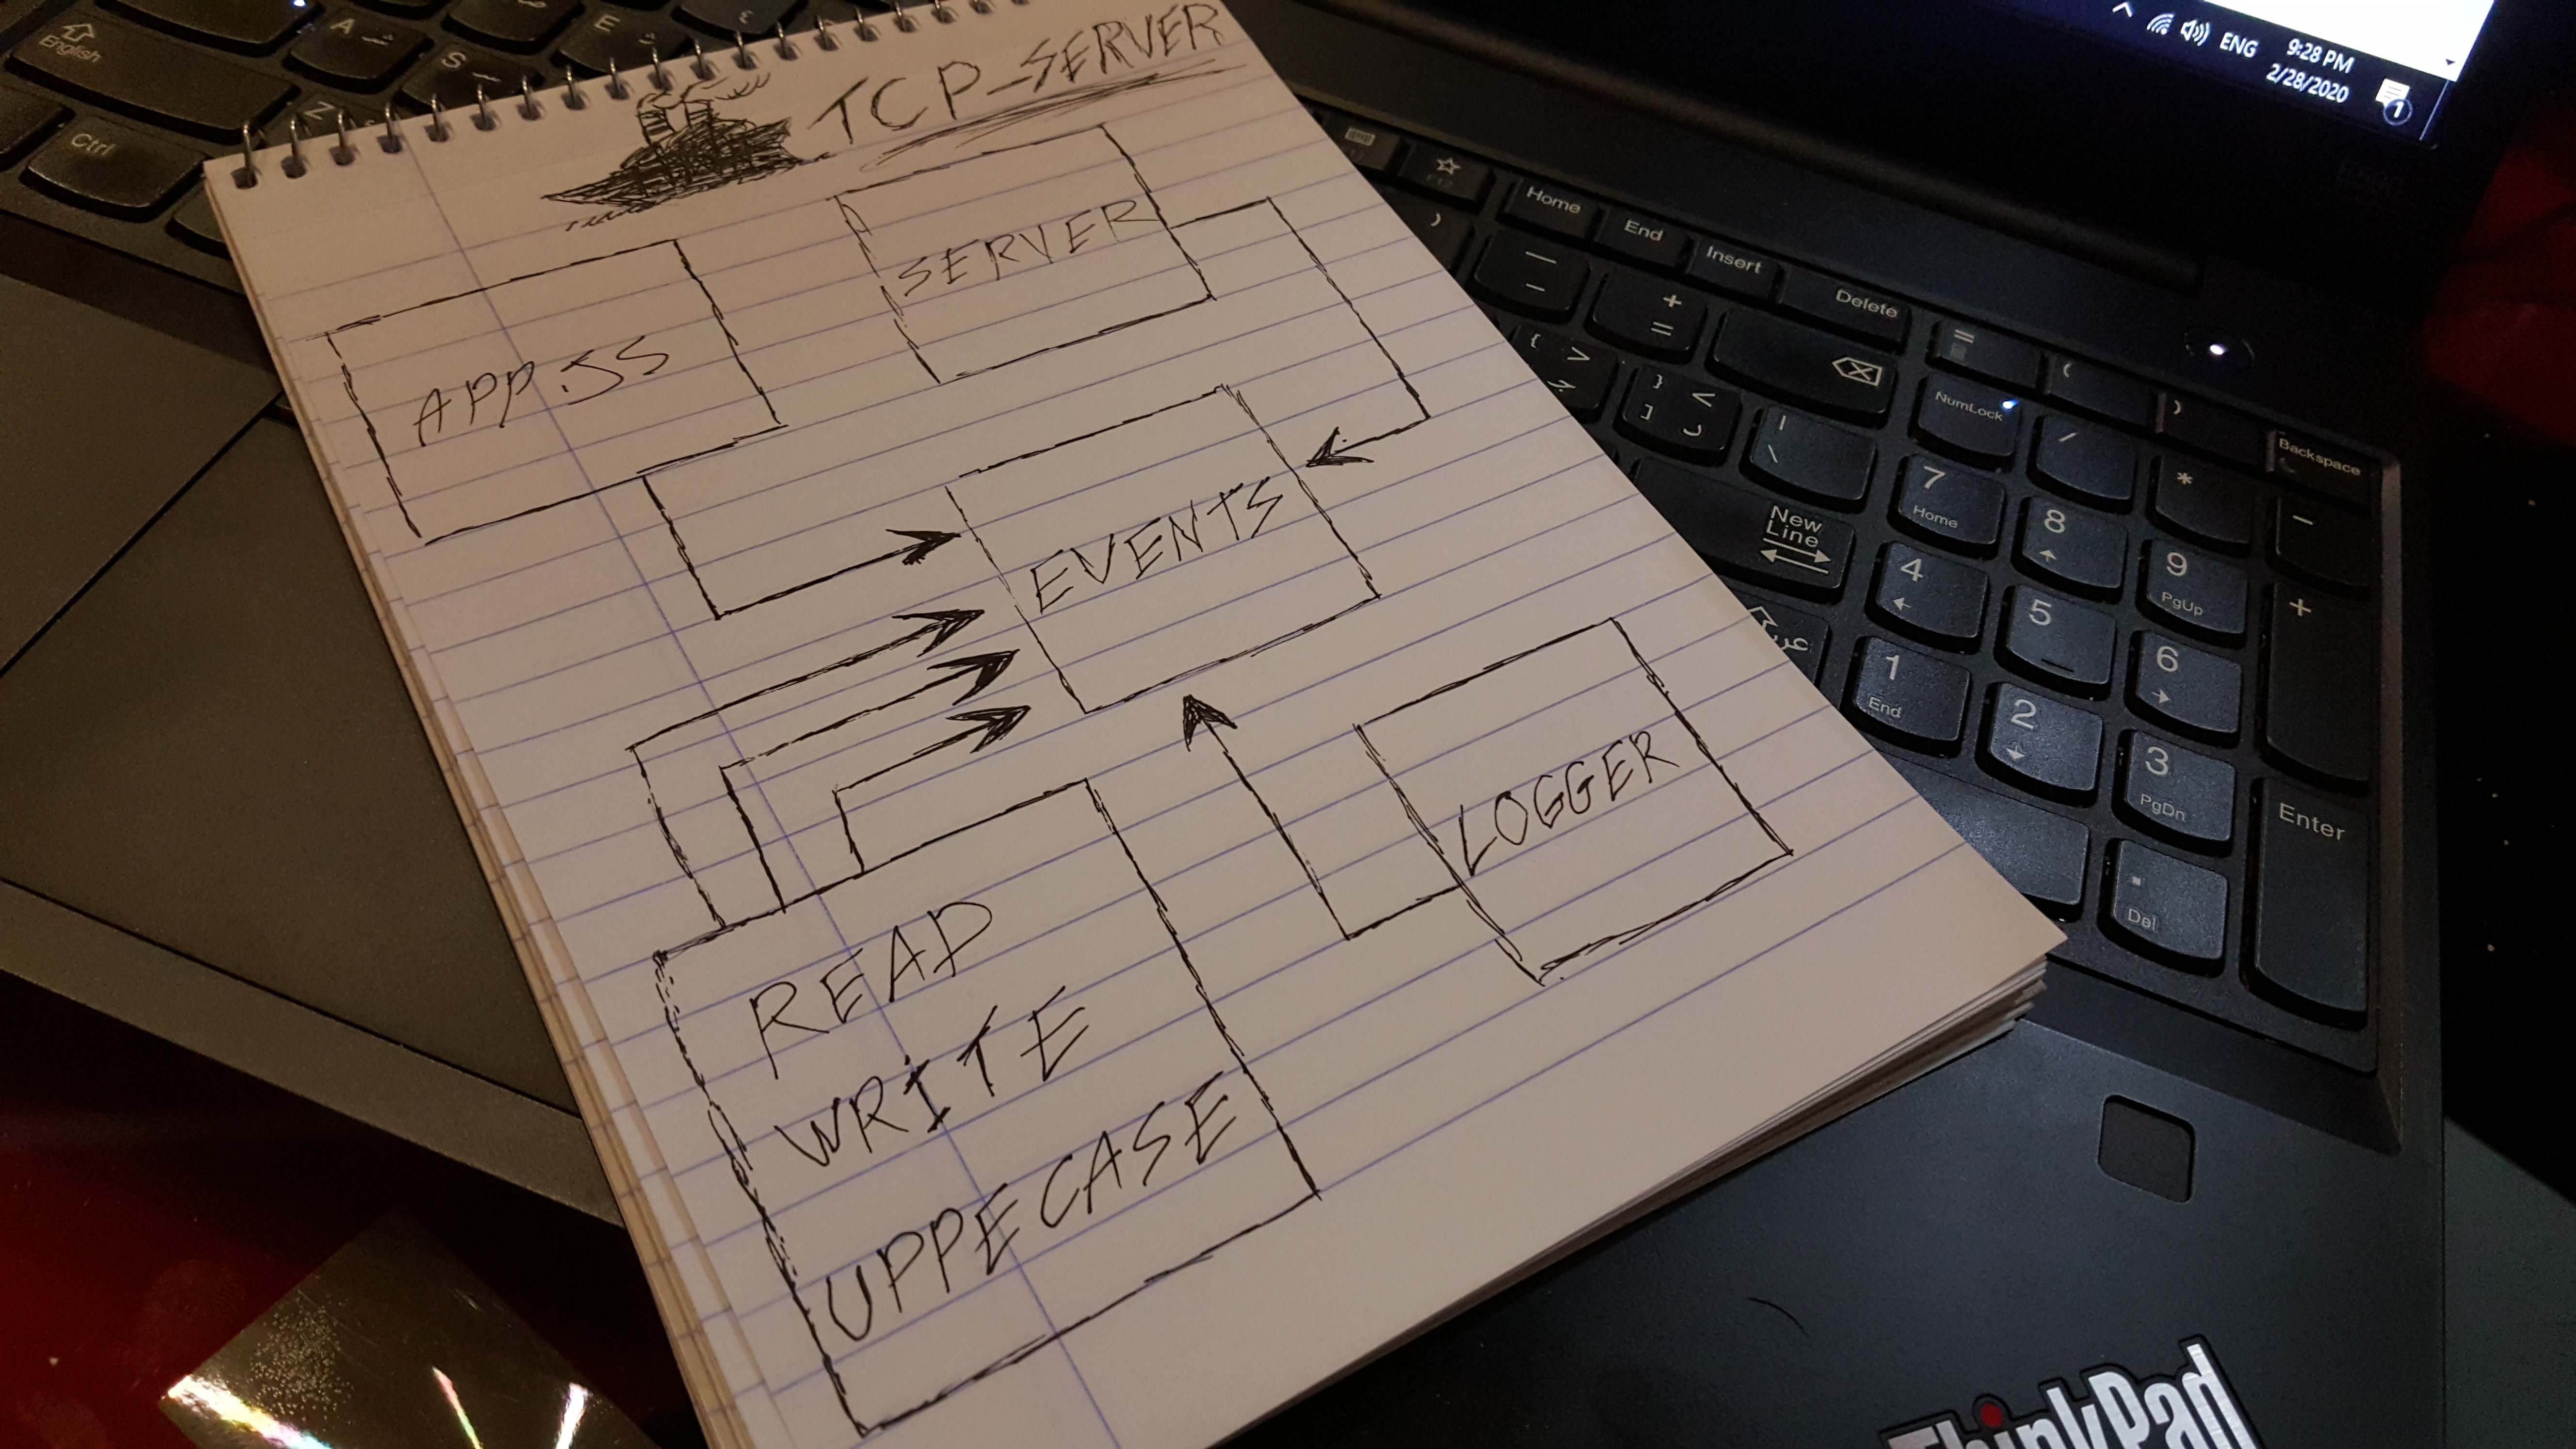 TCP-SERVER
SERVER
APP.JS
EVENTS
LOGGER
READ
WRITE
UPPECASE
English
A
S
E
Z
Ctrl
ENG
9:28 PM
2/28/2020
1
Home
End
Insert
Delete
NumLock
Backspace
New
Line
7
Home
8
9
PgUp
4
5
6
1
End
2
3
PgDn
Enter
.
Del
+
-
*
/
=
(
)
عربي
ThinkPad